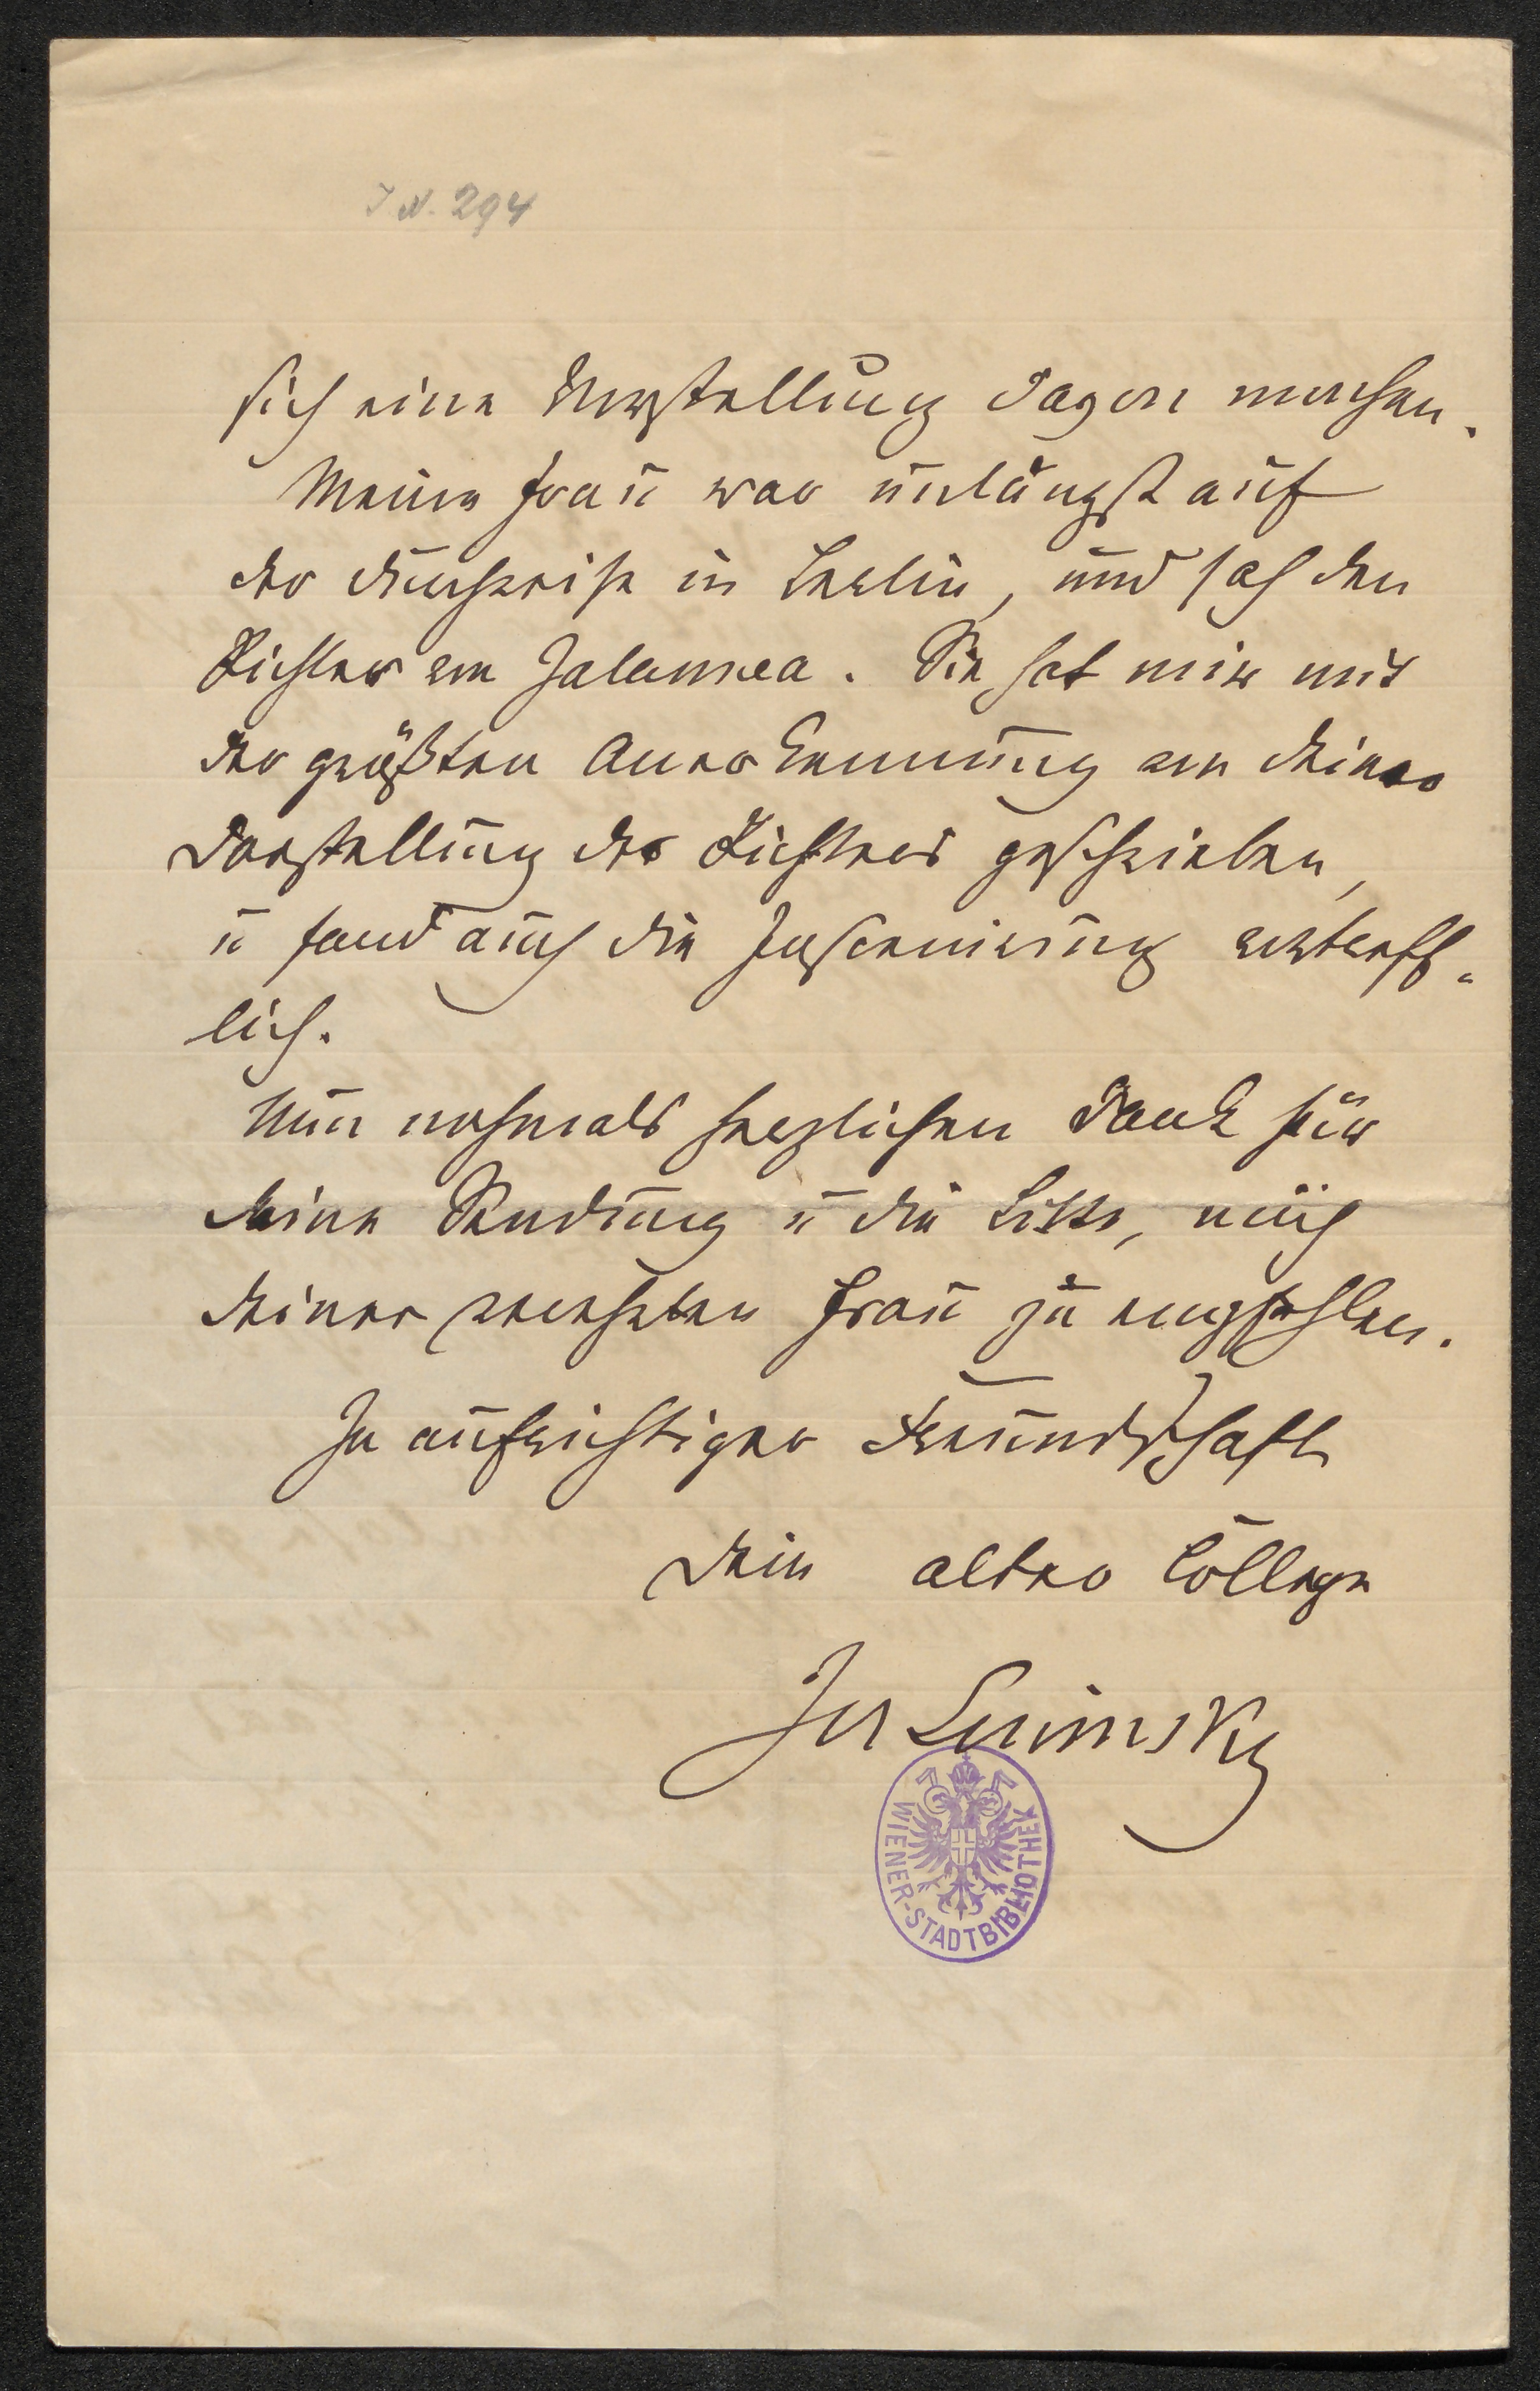 I. N. 294
sich eine Vorstellung davon machen.
Meine Frau war unlängst auf
der Durchreise in Berlin, und sah den
Richter von Zalamea. Sie hat mir mit
der größten Anerkennung von Deiner
Darstellung des Richters geschrieben,
u fand auch die Inscenierung vortreff-
lich.
Nun nochmals herzlichen Dank für
Deine Sendung u die Bitte, mich
Deiner verehrten Frau zu empfehlen.
In aufrichtiger Freundschaft
Dein alter College
Jos Lewinsky
WIENER-STADTBIBLIOTHEK